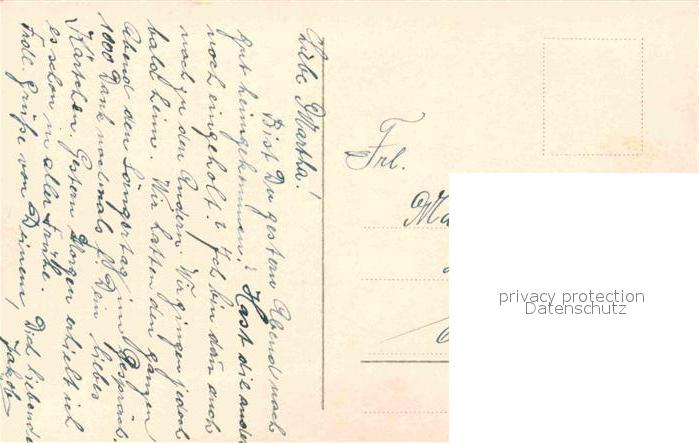 Liebe Martha!
Bist Du gestern Abend noch
gut heimgekommen? Hast die andern
noch eingeholt? Ich bin dan auch
noch zu den Andern. Wir gingen jedoch
bald heim. Wir hatten den ganzen
Abend den Sängertag im Gespräch.
1000 Dank nochmals f. Dein liebes
Kärtchen. Gestern Morgen erhielt ich
es schon in aller Frühe.
Frdl. Grüße von Deinem, Dich liebenden
Jakob
Frl.
Ma
privacy protection
Datenschutz